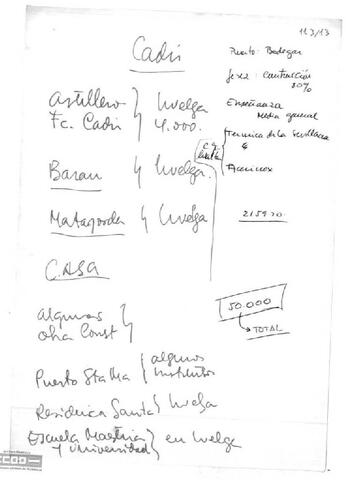 113/13
Cadiz
Puerto: Bodegas
Jerez: Contrucción
80%
Astillero } huelga
Fc. Cadiz } 4.000.
Enseñanza
Media general
Termica de la Sevillana
Bazan } huelga.
Acerinox
Matagorda } huelga
215970
CASA
50.000
TOTAL
algunas
obra Const
Puerto Sta Mª { algunos institutos
Residencia Sanita } huelga
Escuela Maestria y Universidad } en huelga
CCOO